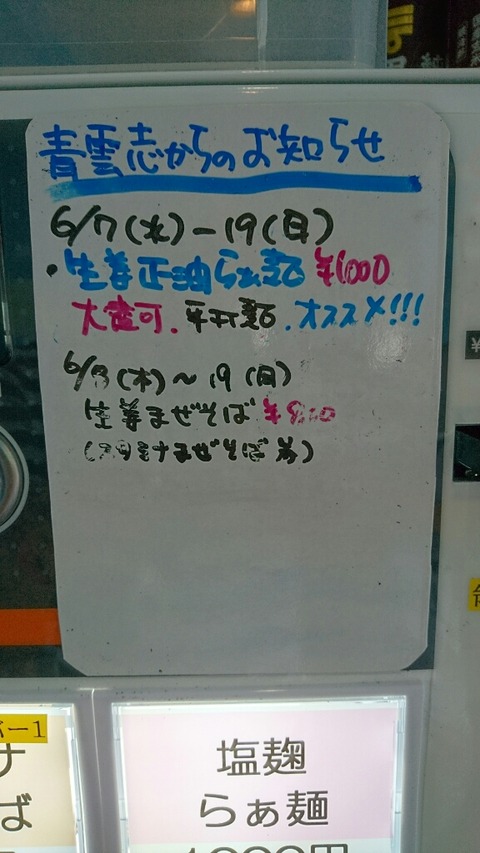 青雲志からのお知らせ
6/7(水)-19(日)
・生姜正油らぁ麺 ¥1000
大盛可、平打麺、オススメ!!!
6/8(木)~19(日)
生姜まぜそば
まぜそば
バー1
ナ
ば
塩麹
らぁ麺